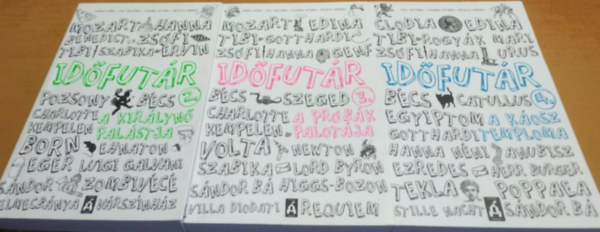 MOZART HANNA
BENEDICT ZSÓFI
TIBI SZABIKA ERVIN
IDŐFUTÁR
2.
POZSONY BÉCS
CHARLOTTE A KIRÁLYNŐ
KEMPELEN PALÁSTJA
BORN EHNATON
EGER LUIGI GALVANI
SÁNDOR ZOMBIVÉCÉ
FILMECRÁNYA Á VÁRSZÍNHÁZ
MOZART EDINA
TIBI GOTTHARDI
ZSÓFI HANNA GENF
IDŐFUTÁR
3.
BÉCS SZEGED
CHARLOTTE A PRÓFÁK
KEMPELEN PALOTÁJA
VOLTA NEWTON
SZABIKA LORD BYRON
SÁNDOR BÁ HIGGS-BOZON
VILLA DIODATI Á REQUIEM
CLODIA EDINA
TIBI ROGYÁK MARI
ZSÓFI HANNA URUS
IDŐFUTÁR
4.
BÉCS CATULLUS
EGYIPTOM A KÁOSZ
GOTTHARDI TEMPLOMA
HANNA NÉNI ANUBISZ
EZREDES HERR BURGER
TEKLA POPPAEA
STILLE NACHT Á SÁNDOR BÁ